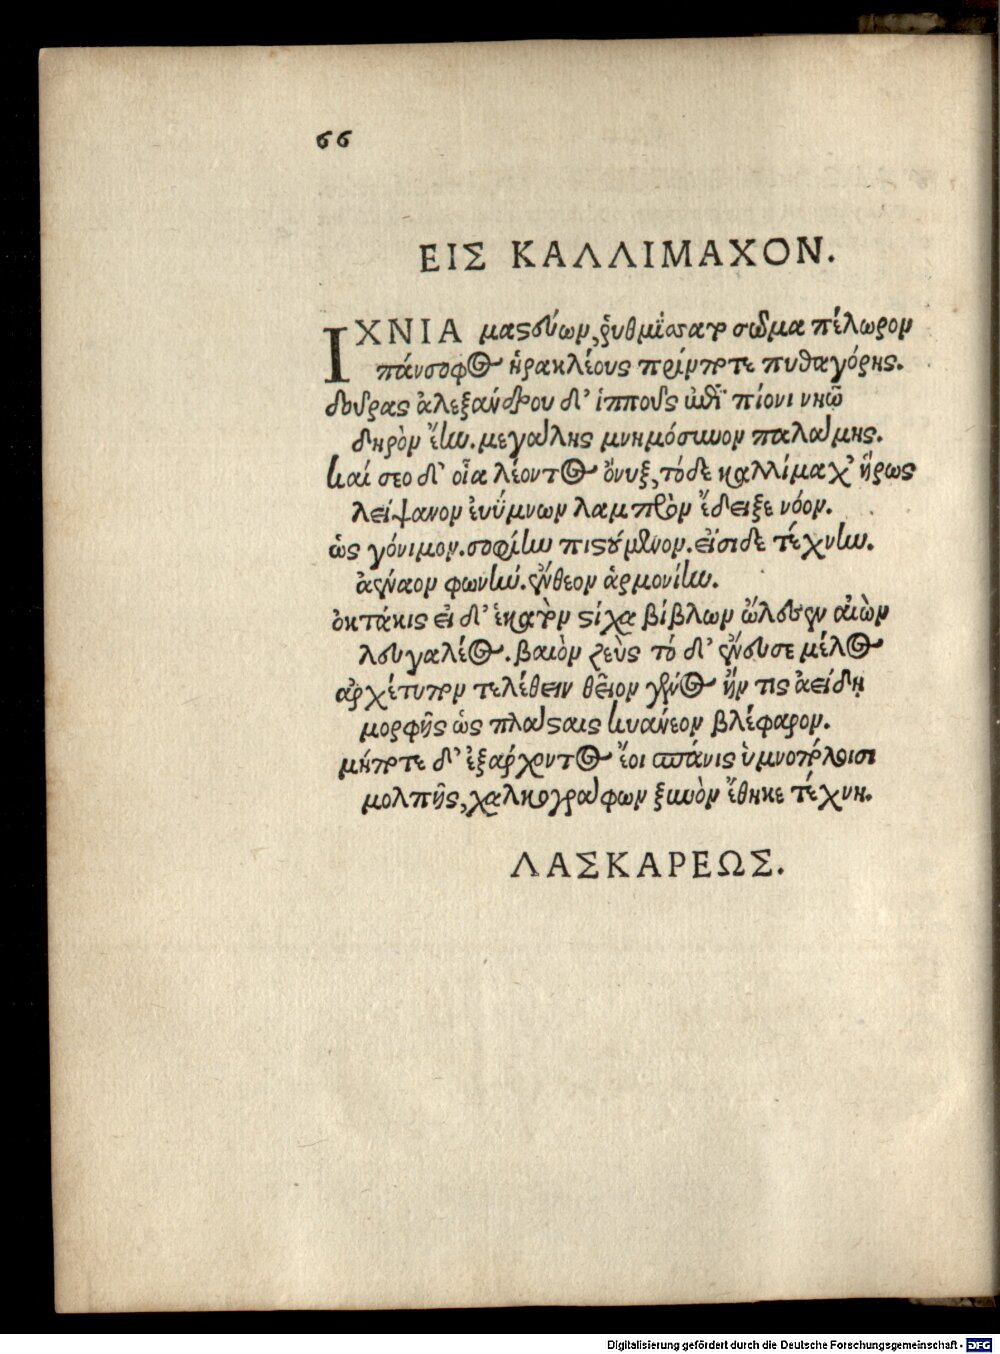 66
ΕΙΣ ΚΑΛΛΙΜΑΧΟΝ.
ΙΧΝΙΑ μαστεύων, ῥυθμίσατο σῶμα πέλωρον
πάνσοφος ἡρακλέους πρίν ποτε πυθαγόρης.
δούρας ἀλεξάνδρου δ' ἱππους ἐπὶ πίονι νηῶ
δηρὸν ἔην. μεγάλης μνημόσυνον παλάμης.
καί σεο δ' οἷα λέοντος ὄνυξ, τόδε καλλίμαχ' ἥρως
λείψανον ἐυΰμνων λαμπρὸν ἔδειξε νόον.
ὡς γόνιμον. σοφίην πιστούμενον. εἴσιδε τέχνην.
ἀέναον φωνήν. ἔνθεον ἁρμονίην.
ὀκτάκις εἰ δ' ἑκατὸν στίχα βίβλων ὤλεσεν αἰὼν
λευγαλέος. βαιὸν ῥεῦς τό δ' ἔνευσε μέλος
ἀρχέτυπον τελέθειν θεῖον γένος ἤν τις ἀείδῃ
μορφῆς ὡς πλάσταις κυανέον βλέφαρον.
μήποτε δ' ἐξαρχοντος ἔοι σπάνις ὑμνοπόλοισι
μολπῆς, χαλκογράφων ξυνὸν ἔθηκε τέχνη.
ΛΑΣΚΑΡΕΩΣ.
Digitalisierung gefördert durch die Deutsche Forschungsgemeinschaft - DFG